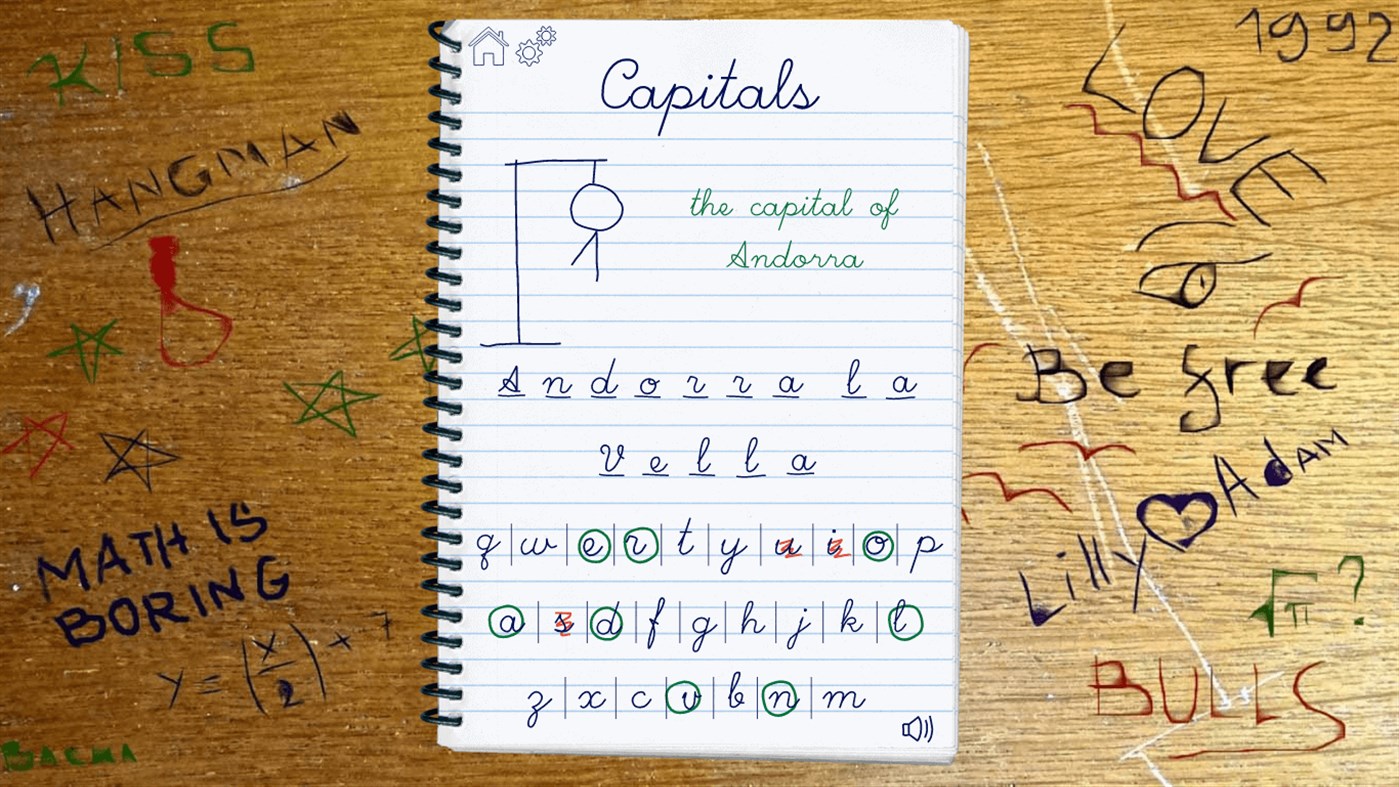 KISS
HANGMAN
MATH IS
BORING
y = (x/2) + 7
BACMA
Capitals
the capital of
Andorra
Andorra la
Vella
q|w|e|r|t|y|u|i|o|p
a|s|d|f|g|h|j|k|l
z|x|c|v|b|n|m
1992
LOVE
Be free
Lilly Adam
√π ?
BULLS